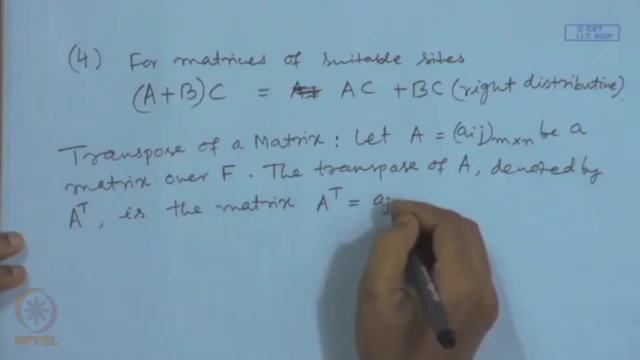 © CET
I.I.T. KGP
(4) For matrices of suitable sites
(A+B)C = AC + BC (right distributive)
Transpose of a Matrix : Let A = (aij)m×n be a
matrix over F. The transpose of A, denoted by
A^T, is the matrix A^T = aj
NPTEL